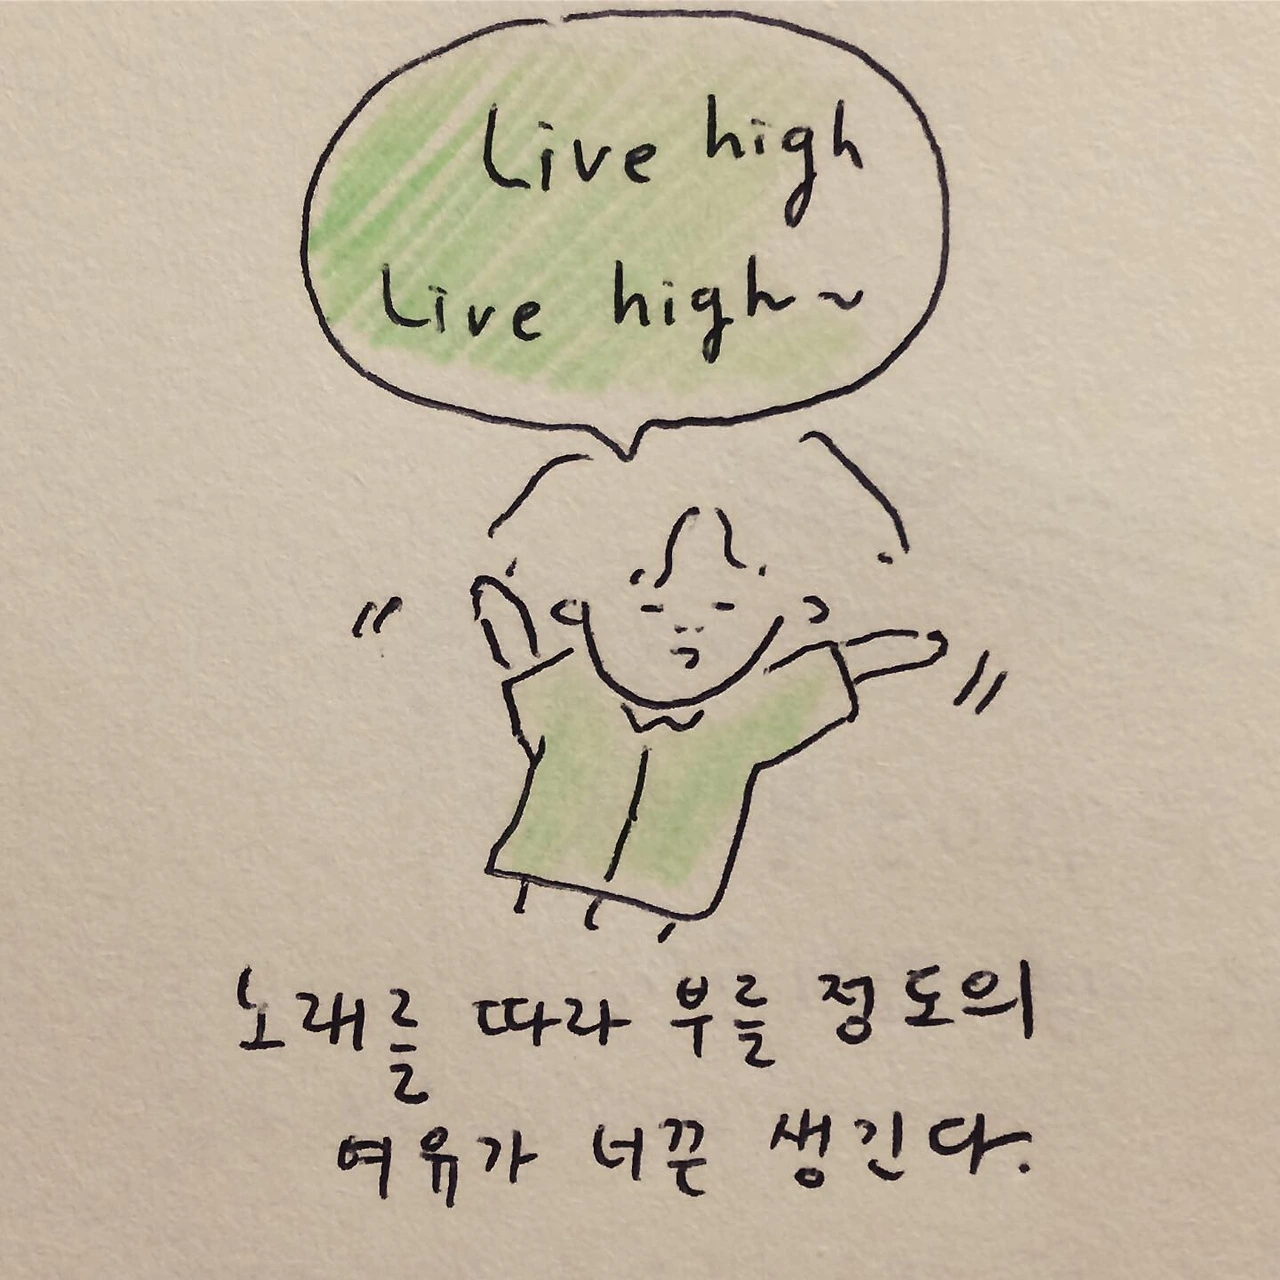 Live high
Live high~
노래를 따라 부를 정도의
여유가 너끈 생긴다.